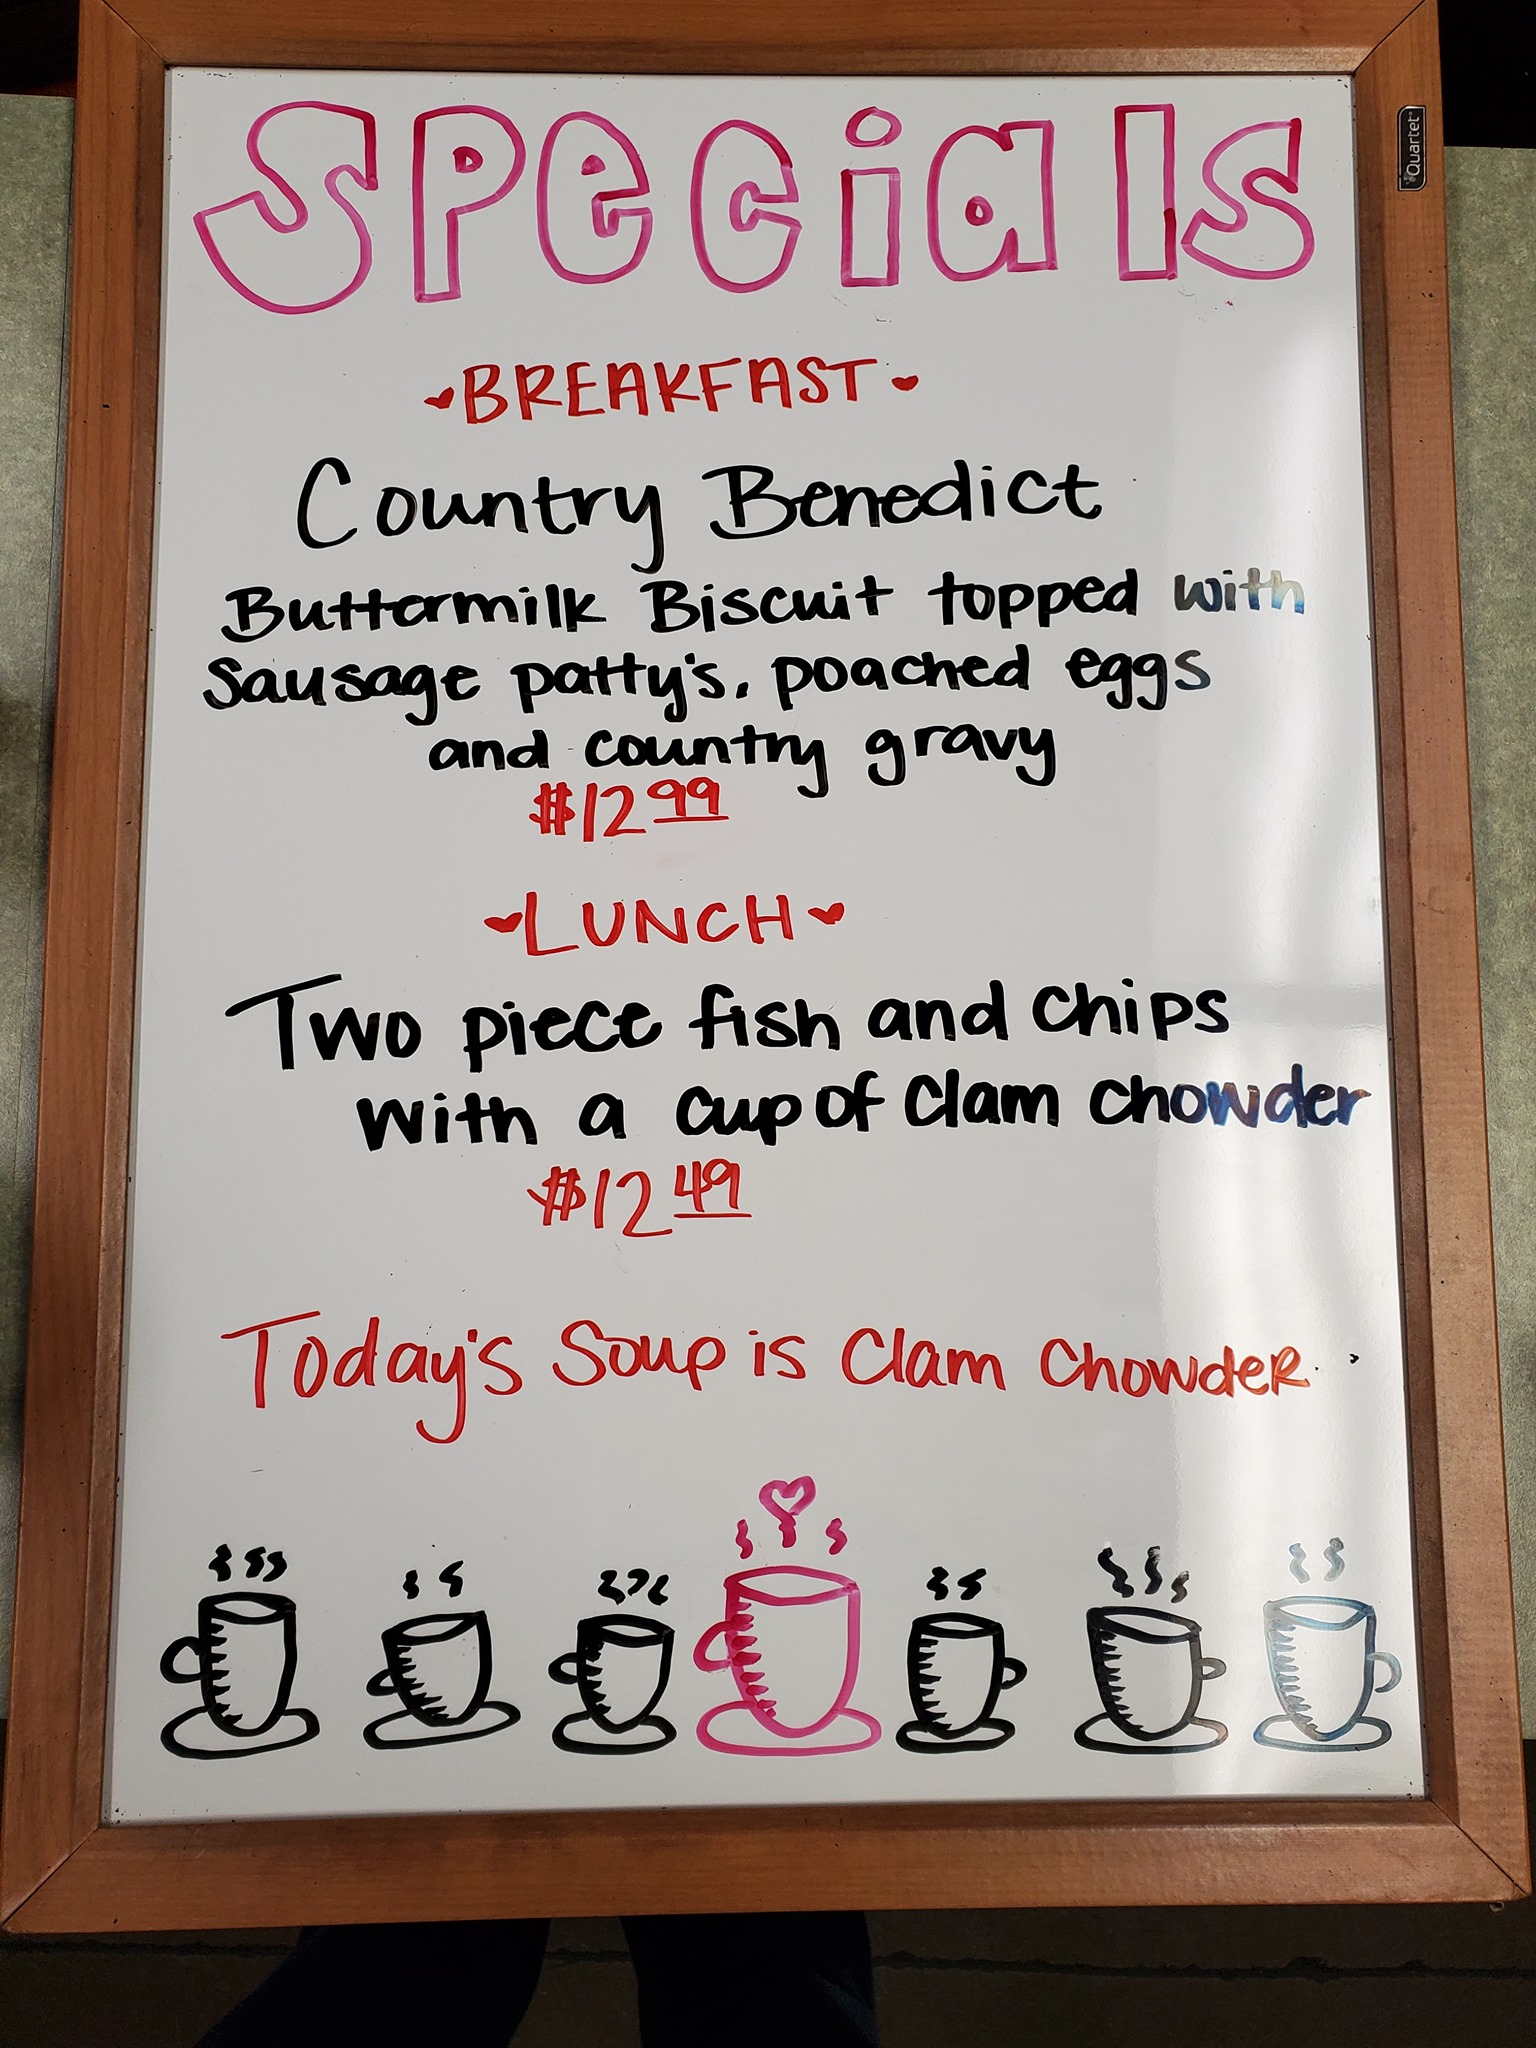 Specials
Quartet
BREAKFAST
Country Benedict
Buttermilk Biscuit topped with
Sausage patty's, poached eggs
and country gravy
$12 99
LUNCH
Two piece fish and chips
with a cup of clam chowder
$12 49
Today's Soup is Clam Chowder